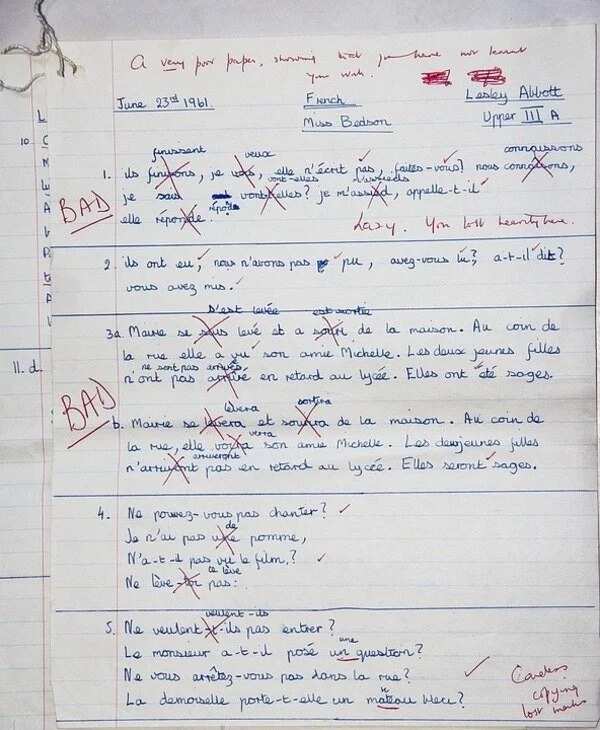 A very poor paper, showing that you have not learnt
your work.
June 23rd 1961.
French
Lesley Abbott
Miss Bedson
Upper III A
finissent veux connaissons
1. ils finirons, je vous, elle n'écrit pas, faites-vous? nous connaitons,
vont-elles m'assieds
BAD
je sais vont elles? je m'assied, appelle-t-il
répond
elle réponde.
Lazy. You lost heavily here.
2. ils ont eu, nous n'avons pas pu, avez-vous lu? a-t-il dit?
vous avez mis.
s'est levée est sortie
3a. Marie se levé et a sorti de la maison. Au coin de
la rue elle a vu son amie Michelle. Les deux jeunes filles
ne sont pas arrivés
n'ont pas arrivé en retard au lycée. Elles ont été sages.
BAD
lèvera sortira
b. Marie se levera et sortira de la maison. Au coin de
verra
la rue, elle voira son amie Michelle. Les deux jeunes filles
arriveront
n'arrivont pas en retard au lycée. Elles seront sages.
4. Ne pouvez-vous pas chanter?
de
Je n'ai pas une pomme,
N'a-t-il pas vu le film?
Ne lève pas:
veulent-ils
5. Ne veulent-t-ils pas entrer?
une
Le monsieur a-t-il posé un question?
Ne vous arrêtez-vous pas dans la rue?
La demoiselle porte-t-elle un mateau bleu?
Careless
copying
lost marks
10
11. d.